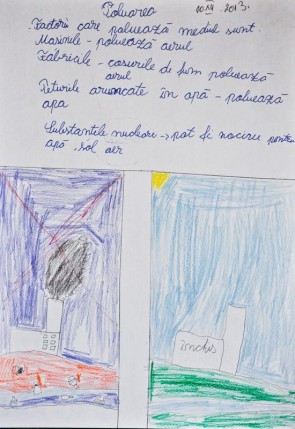 Poluarea
20.11.2013.
Factorii care poluează mediul sunt:
Masinile - poluează aerul
Fabriale - cosurile de fum poluează
aerul
Peturile aruncate în apă - poluează
apa
Substantele nucleare → pot fi nocive pentru
apă, sol aer
închis